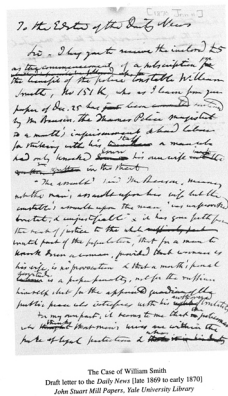 [Jan 1870]
To the Editor of the Daily News
Sir — I beg you to receive the inclosed £5
as the commencement of a subscription for
the benefit of the police constable William
Smith, No 151 , who as I learn from your
paper of Dec. 25 has just been
by Mr Benson, the Thames Police magistrate
to a month's imprisonment & hard labour
for striking with his staff a man who
had only knocked down his own wife
in the street.
The assault Mr Benson, meaning
not the man's assault upon his wife but the
constable's assault upon the man, was unprovoked
brutal, & unjustifiable & it has gone forth from
the seat of justice to the
brutal part of the population, that for a man to
knock down a woman, provided that woman is
his wife is no provocation & that a month's
labour is a proper penalty, not for the ruffian
himself but for the appointed guardian of the
public peace who interferes with his
For my own part, it seems to me that a policeman
who thinks that men's wives are within the
pale of legal protection &
The Case of William Smith
Draft letter to the Daily News [late 1869 to early 1870]
John Stuart Mill Papers, Yale University Library